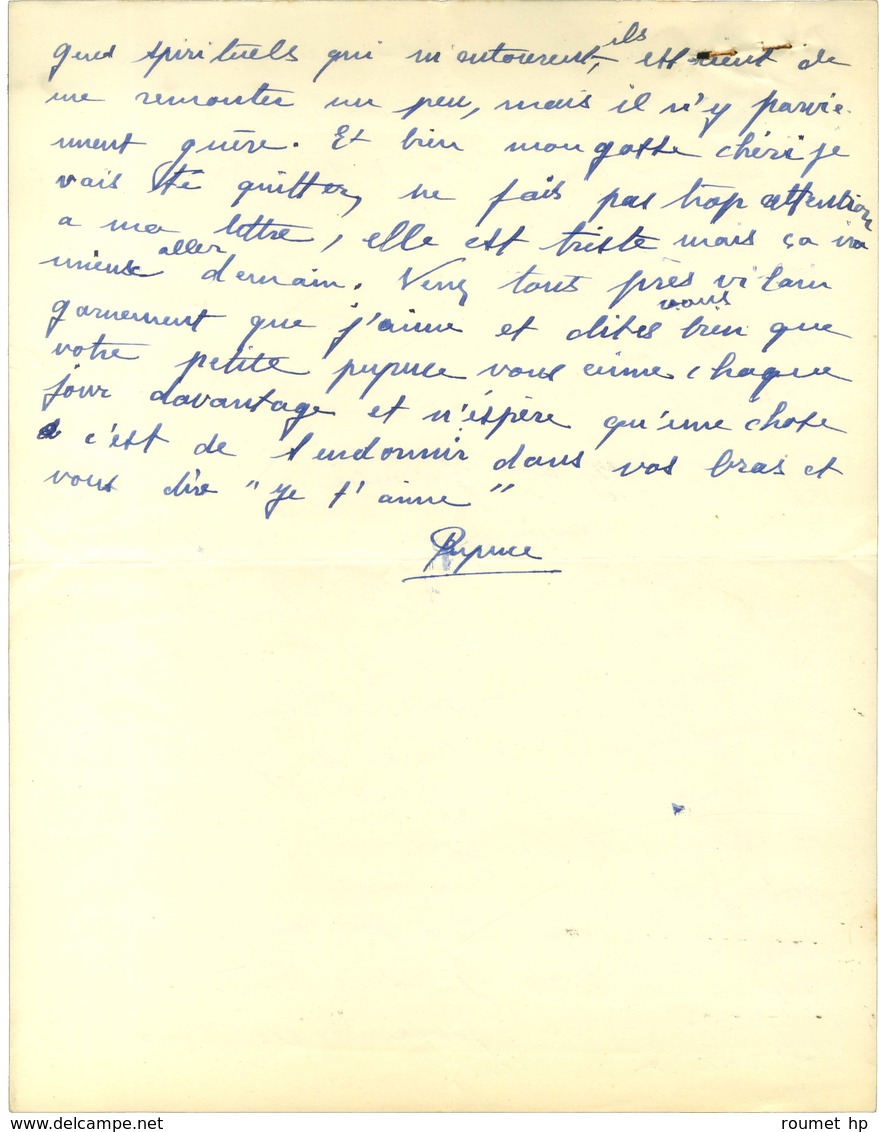 gens spirituels qui m'entourent, ils essaient de
me remonter un peu, mais il n'y parvie-
nnent guère. Et bien mon gosse chéri je
vais te quitter, ne fais pas trop attention
a ma lettre, elle est triste mais ça ira
mieux aller demain. Venez tout près vilain
garnement que j'aime et dites vous bien que
votre petite pupuce vous aime chaque
jour davantage et n'éspère qu'une chose
c'est de s'endormir dans vos bras et
vous dire "je t'aime"
Pupuce
www.delcampe.net
roumet hp